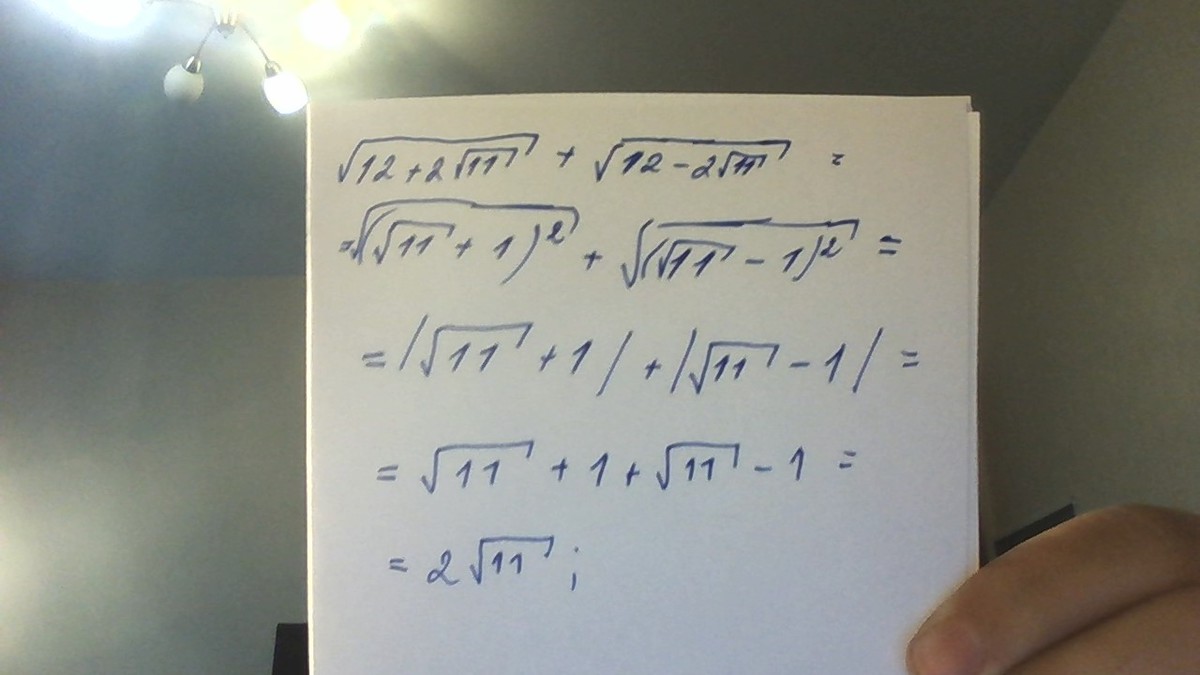 √(12+2√11) + √(12-2√11) =
=√((√11 + 1)²) + √((√11 - 1)²) =
= |√11 + 1| + |√11 - 1| =
= √11 + 1 + √11 - 1 =
= 2√11 ;